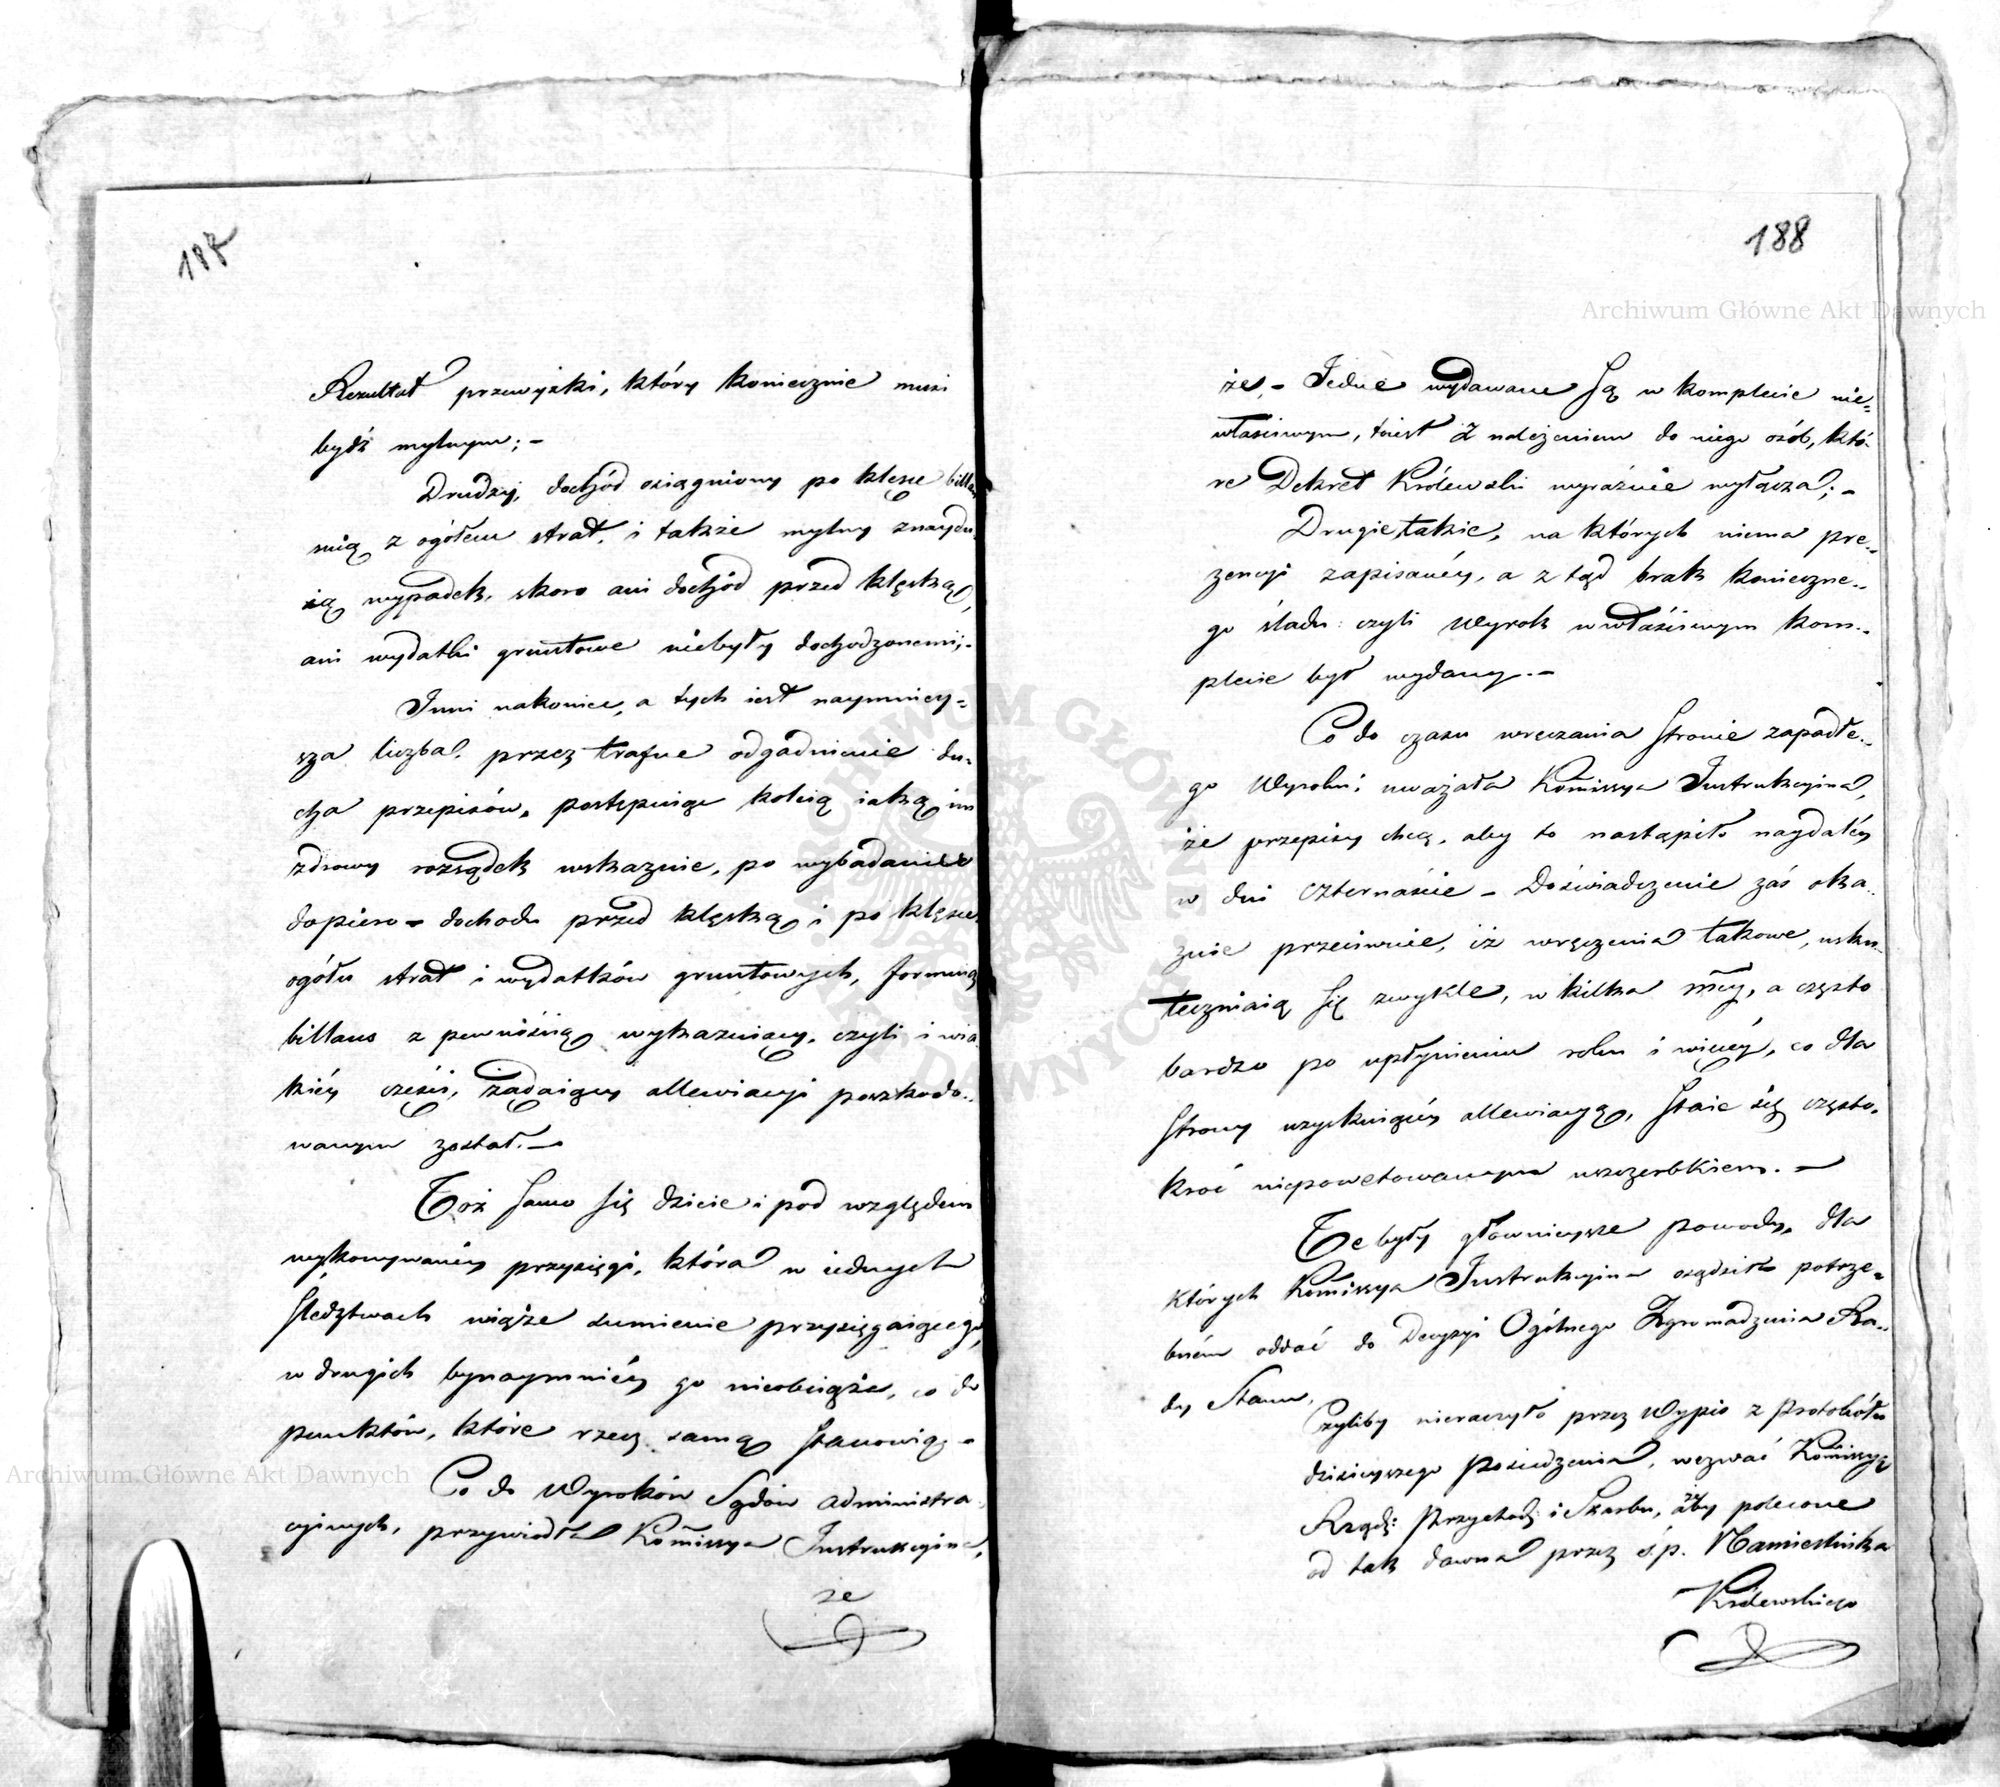 187
Rezultat przewyżki, który koniecznie musi
bydź mylnym; -
Drudzy, dochód osiągniony po klęsce billan
suią z ogółem strat, i także mylny znaydu
ią wypadek, skoro ani dochód przed klęską,
ani wydatki gruntowe niebyły dochodzonemi; -
Inni nakoniec, a tych iest naymniey=
sza liczba, przez trafne odgadnienie du-
cha przepisów, postępuiąc koleią iaką im
zdrowy rozsądek wskazuie, po wybadaniu
dopiero dochodu przed klęską i po klęsce
ogółu strat i wydatków gruntowych, formuią
billans z pewnością wykazuiący, czyli i w ia
kiéy części, żądaiący allewiacyi poszkodo-
wanym został. -
Toż samo się dzieie i pod względem
wykonywanéy przysięgi, która w iednych
śledztwach wiąże sumienie przysięgaiącego,
w drugich bynaymniéy go nieobciąża, co do
punktów, które rzecz samą stanowią. -
Co do Wyroków Sądów administra
cyinych, przywiodła Kommissya Instrukcyina,
że
188
Archiwum Główne Akt Dawnych
że, - Iedne wydawane są w komplecie nie=
właściwym, toiest z należeniem do niego osób, któ-
re Dekret Królewski wyraźnie wyłącza; -
Drugie takie, na których niema pre-
zencyi zapisanéy, a z tąd brak koniecznе-
go śladu: czyli Wyrok w właściwym kom-
plecie był wydany. -
Co do czasu wręczania stronie zapadłe-
go Wyroku; uważała Kommissya Instrukcyina,
że przepisy chcą, aby to nastąpiło naydaléy
w dni czternaście - Doświadczenie zaś oka-
zuie przeciwnie, iż wręczenia takowe, usku-
teczniaią się zwykle, w kilka mcy, a często
bardzo po upłynieniu roku i więcéy, co dla
strony uzyskuiącéy allewiacyą, staie się często-
kroć niepowetowanym uszczerbkiem. -
Te były głównieysze powody, dla
których Kommissya Instrukcyina osądziła potrze=
bném oddać do Decyzyi Ogólnego Zgromadzenia Ra-
dy Stanu,
Czyliby nieraczyło przez Wypis z Protokółu
dzisieyszego posiedzenia, wezwać Kommissyą
Rządz: Przychodź: i Skarbu, żeby polecone
od tak dawna przez ś. p. Namiestnika
Królewskiego
Archiwum Główne Akt Dawnych